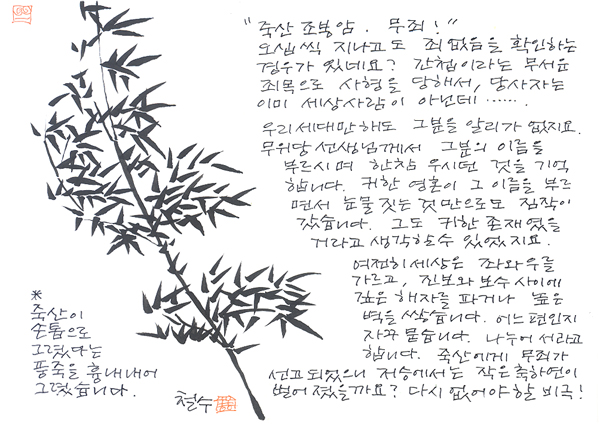 "죽산 조봉암. 무죄!"
오십씩 지나고도 죄없음을 확인하는
경우가 있네요? 간첩이라는 무서운
죄목으로 사형을 당해서, 당사자는
이미 세상사람이 아닌데…….
우리세대만해도 그분을 알리가 없지요.
무위당 선생님께서 그분의 이름을
부르시며 한참 우시던 것을 기억
합니다. 귀한 영혼이 그 이름을 부르
면서 눈물 짓는 것만으로도 짐작이
갔습니다. 그도 귀한 존재였을
거라고 생각할수 있었지요.
여전히 세상은 좌와 우를
가르고, 진보와 보수 사이에
깊은 해자를 파거나 높은
벽을 쌓습니다. 어느 편인지
자꾸 묻습니다. 나누어 서라고
합니다. 죽산에게 무죄가
선고 되었으니 저승에서는 작은 축하연이
벌어 졌을까요? 다시 없어야 할 비극!
*
죽산이
손톱으로
그렸다는
풍죽을 흉내내어
그렸습니다.
철수